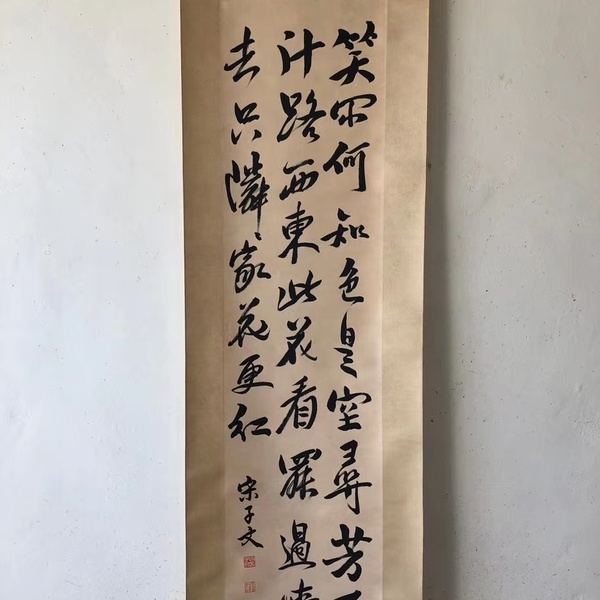 笑何知色是空尋芳
計路西東此花看罷過
去只隣家花更紅
宋子文